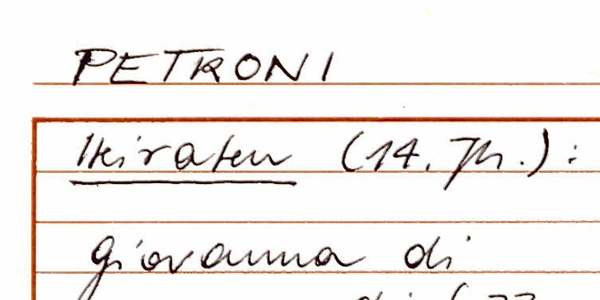 PETRONI
Heiraten (14. Jh.):
Giovanna di